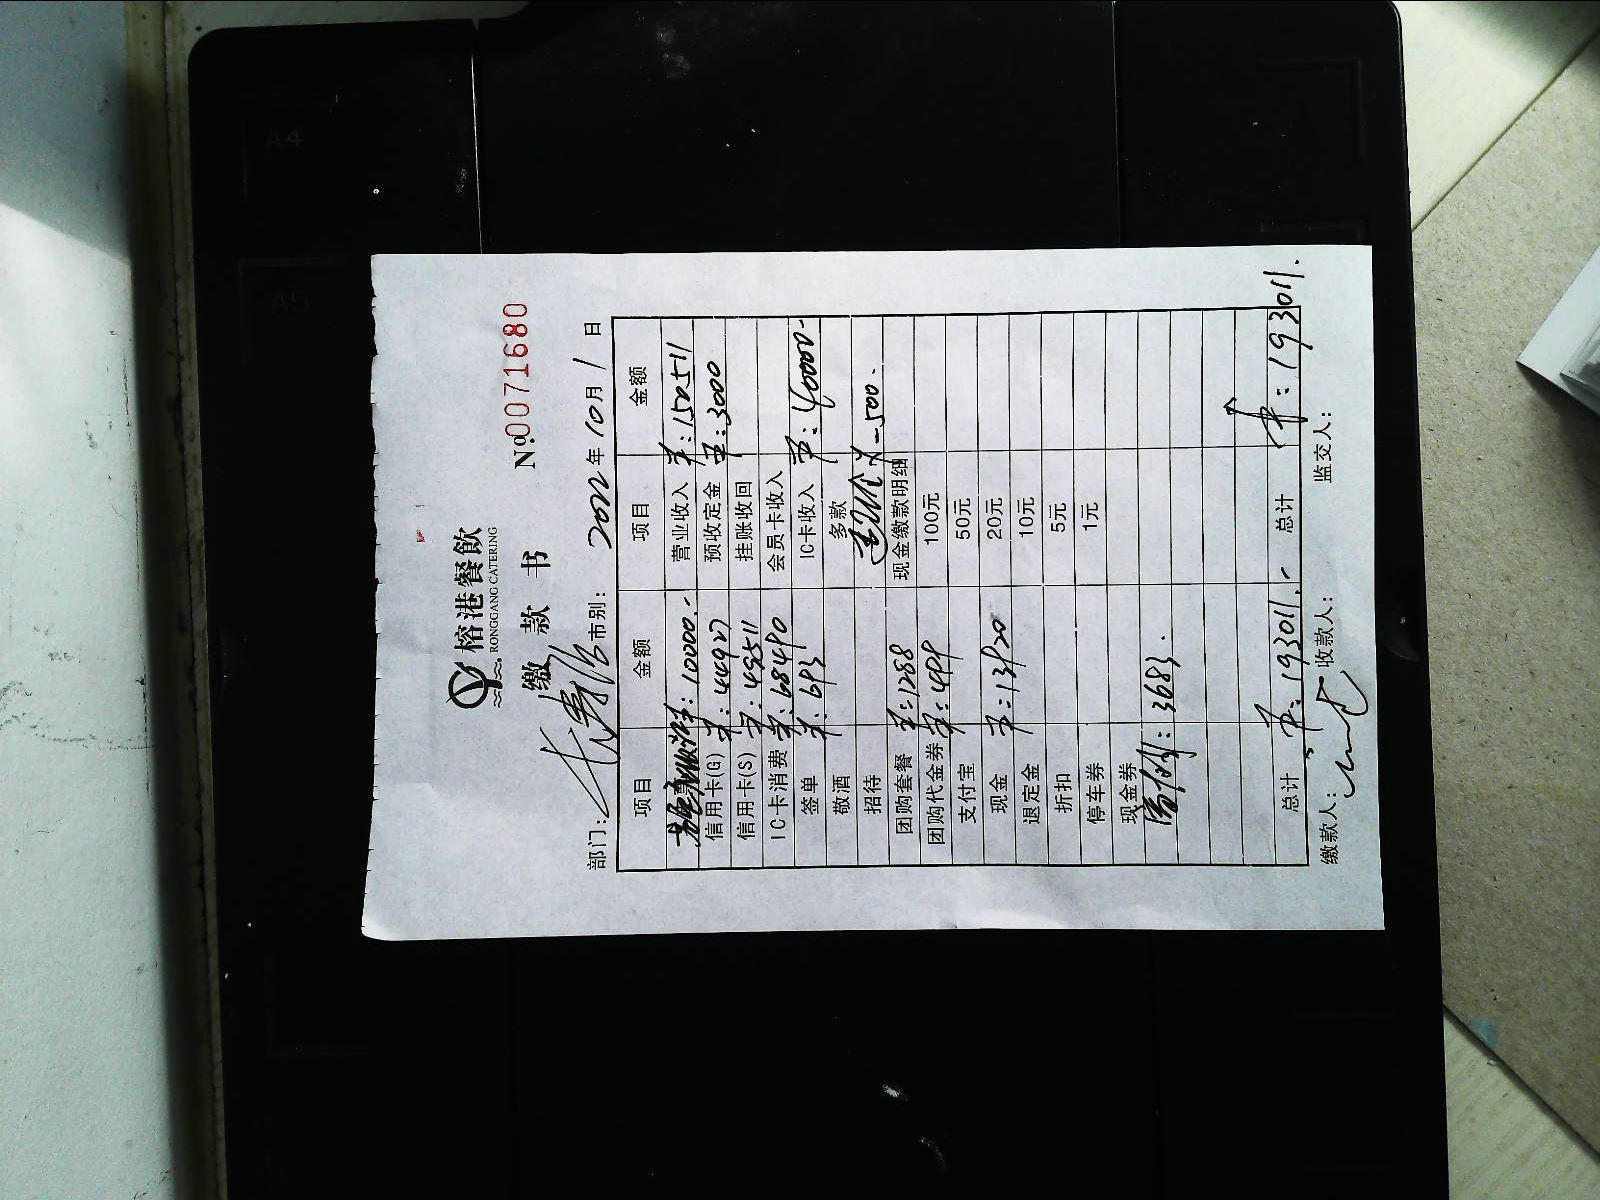 榕港餐飲
RONGGANG CATERING
缴 款 书
№0071680
部门: 市别: 2022年10月1日
项目 金额 项目 金额
10000.- 营业收入 150511
信用卡(G) 44927 预收定金 3000
信用卡(S) 49511 挂账收回
IC卡消费 68490 会员卡收入
签单 693 IC卡收入 40000-
敬酒 多款
招待 -500.
现金缴款明细
团购套餐 1288 100元
团购代金券 499 50元
支付宝 20元
现金 13920 10元
退定金 5元
折扣 1元
停车券
现金券
3683.
总计 193011.- 总计 193011.
缴款人: 收款人: 监交人:
A4
A5